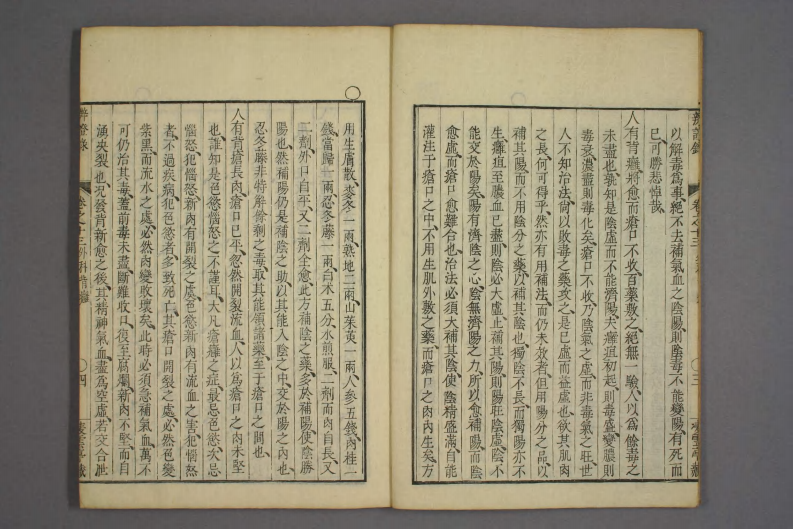 以解毒爲事絕不去補氣血之陰陽則陰毒不能變陽有死而
已可勝悲惋哉
人有背癰將愈而瘡口不收百藥敷之絕無一驗人以爲餘毒之
未盡也孰知是陰虛而不能濟陽夫癰疽初起則毒盛變膿則
毒衰膿盡則毒化矣瘡口不收乃陰氣之虛而非毒氣之旺世
人不知治法尚以敗毒之藥攻之是已虛而益虛也欲其肌肉
之長何可得乎然亦有用補法而仍未效者但用陽分之品以
補其陽而不用陰分之藥以補其陰也獨陰不長而獨陽亦不
生癰疽至膿血已盡則陰必大虛止補其陽則陽旺陰虛陰不
能交於陽矣陽有濟陰之心陰無濟陽之力所以愈補陽而陰
愈虛而瘡口愈難合也治法必須大補其陰使陰精盛滿自能
灌注于瘡口之中不用生肌外敷之藥而瘡口之肉內生矣方
辨證錄
卷之十三
三
用生膚散麥冬一兩熟地二兩山茱萸一兩人參五錢肉桂一
錢當歸一兩忍冬藤一兩白朮五分水煎服二劑而肉自長又
二劑外口自平又二劑全愈此方補陰之藥多於補陽使陰勝
陽也然補陽仍是補陰之助以其能入陰之中交於陽之內也
忍冬藤非特解餘剩之毒取其能領諸藥至于瘡口之間也
人有背瘡長肉瘡口已平忽然開裂流血人以爲瘡口之肉未堅
也誰知是色慾惱怒之不謹耳大凡瘡癰之症最忌色慾次忌
惱怒犯惱怒新肉有開裂之虞色慾新肉有流血之害犯惱怒
者不過疾病犯色慾者多致死亡其瘡口開裂之處必然色變
紫黑而流水之處必然肉變敗壞矣此時必須急補氣血萬不
可仍治其毒蓋前毒未盡斷難收口復至腐爛新肉不堅而自
湧決裂也況發背新愈之後其精神氣血盡爲空虛若交合泄
辨證錄
卷之十三外科
四